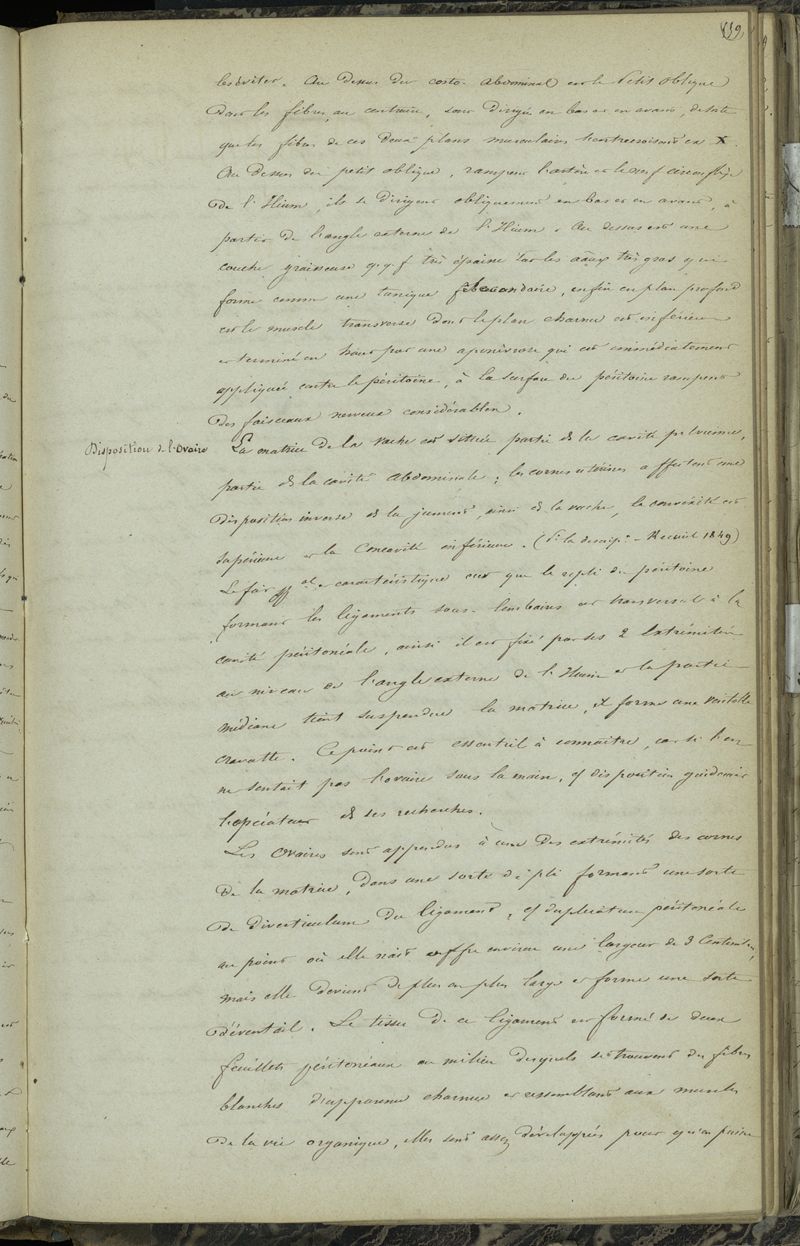 139
les éviter. Au dessus du costo abdominal est le Petit oblique
Dont les fibres, au contraire, sont dirigées en bas et en avant, de sorte
que les fibres de ces deux plans musculaires s'entrecroisent en X.
Au dessus du petit oblique, rampent l'artère et le nerf circonflexe
De l'Ilium, ils se dirigent obliquement en bas et en avant, à
partir De l'angle externe de l'Ilium. Au dessus est une
couche graisseuse qq.f très épaisse sur les animaux très gras qui
forme comme une tunique secondaire, enfin en plan profond
est le muscle transverse dont le plan charnu est inférieur
et terminé en haut par une aponévrose qui est immédiatement
appliquée contre le péritoine, à la surface du péritoine rampent
Des faisceaux nerveux considérables.
Disposition de l'Ovaire
La matrice De la vache est située partie ds la cavité pelvienne,
partie ds la cavité abdominale; les cornes utérines affectent une
Disposition inverse ds la jument, ainsi ds la vache, la convexité est
supérieure et la Concavité inférieure. (Vr la descript.n - Recueil 1849)
Le fait caractéristique est que le repli du péritoine
formant les ligaments sous-lombaires est transversal à la
cavité péritonéale, ainsi il est fixé par ses 2 Extrémités
au niveau de l'angle externe de l'Ilium et la partie
médiane tient suspendue la matrice, et forme une véritable
cravatte. Ce point est essentiel à connaître, car si l'on
ne sentait pas l'ovaire sous la main, cf disposition guiderait
l'opérateur ds ses recherches.
Les Ovaires sont appendus à une Des extrémités des cornes
De la matrice, Dans une sorte de pli formant une sorte
De Diverticulum Du ligament, cf duplicature péritonéale
au point où elle nait offre environ une largeur de 3 Centimètres,
mais elle Devient De plus en plus large et forme une sorte
D'éventail. Le tissu De ce ligament est formé de deux
feuillets péritonéaux au milieu desquels se trouvent des fibres
blanches d'apparence charnue et ressemblant aux muscles
De la vie organique, elles sont assez développées pour qu'on puisse